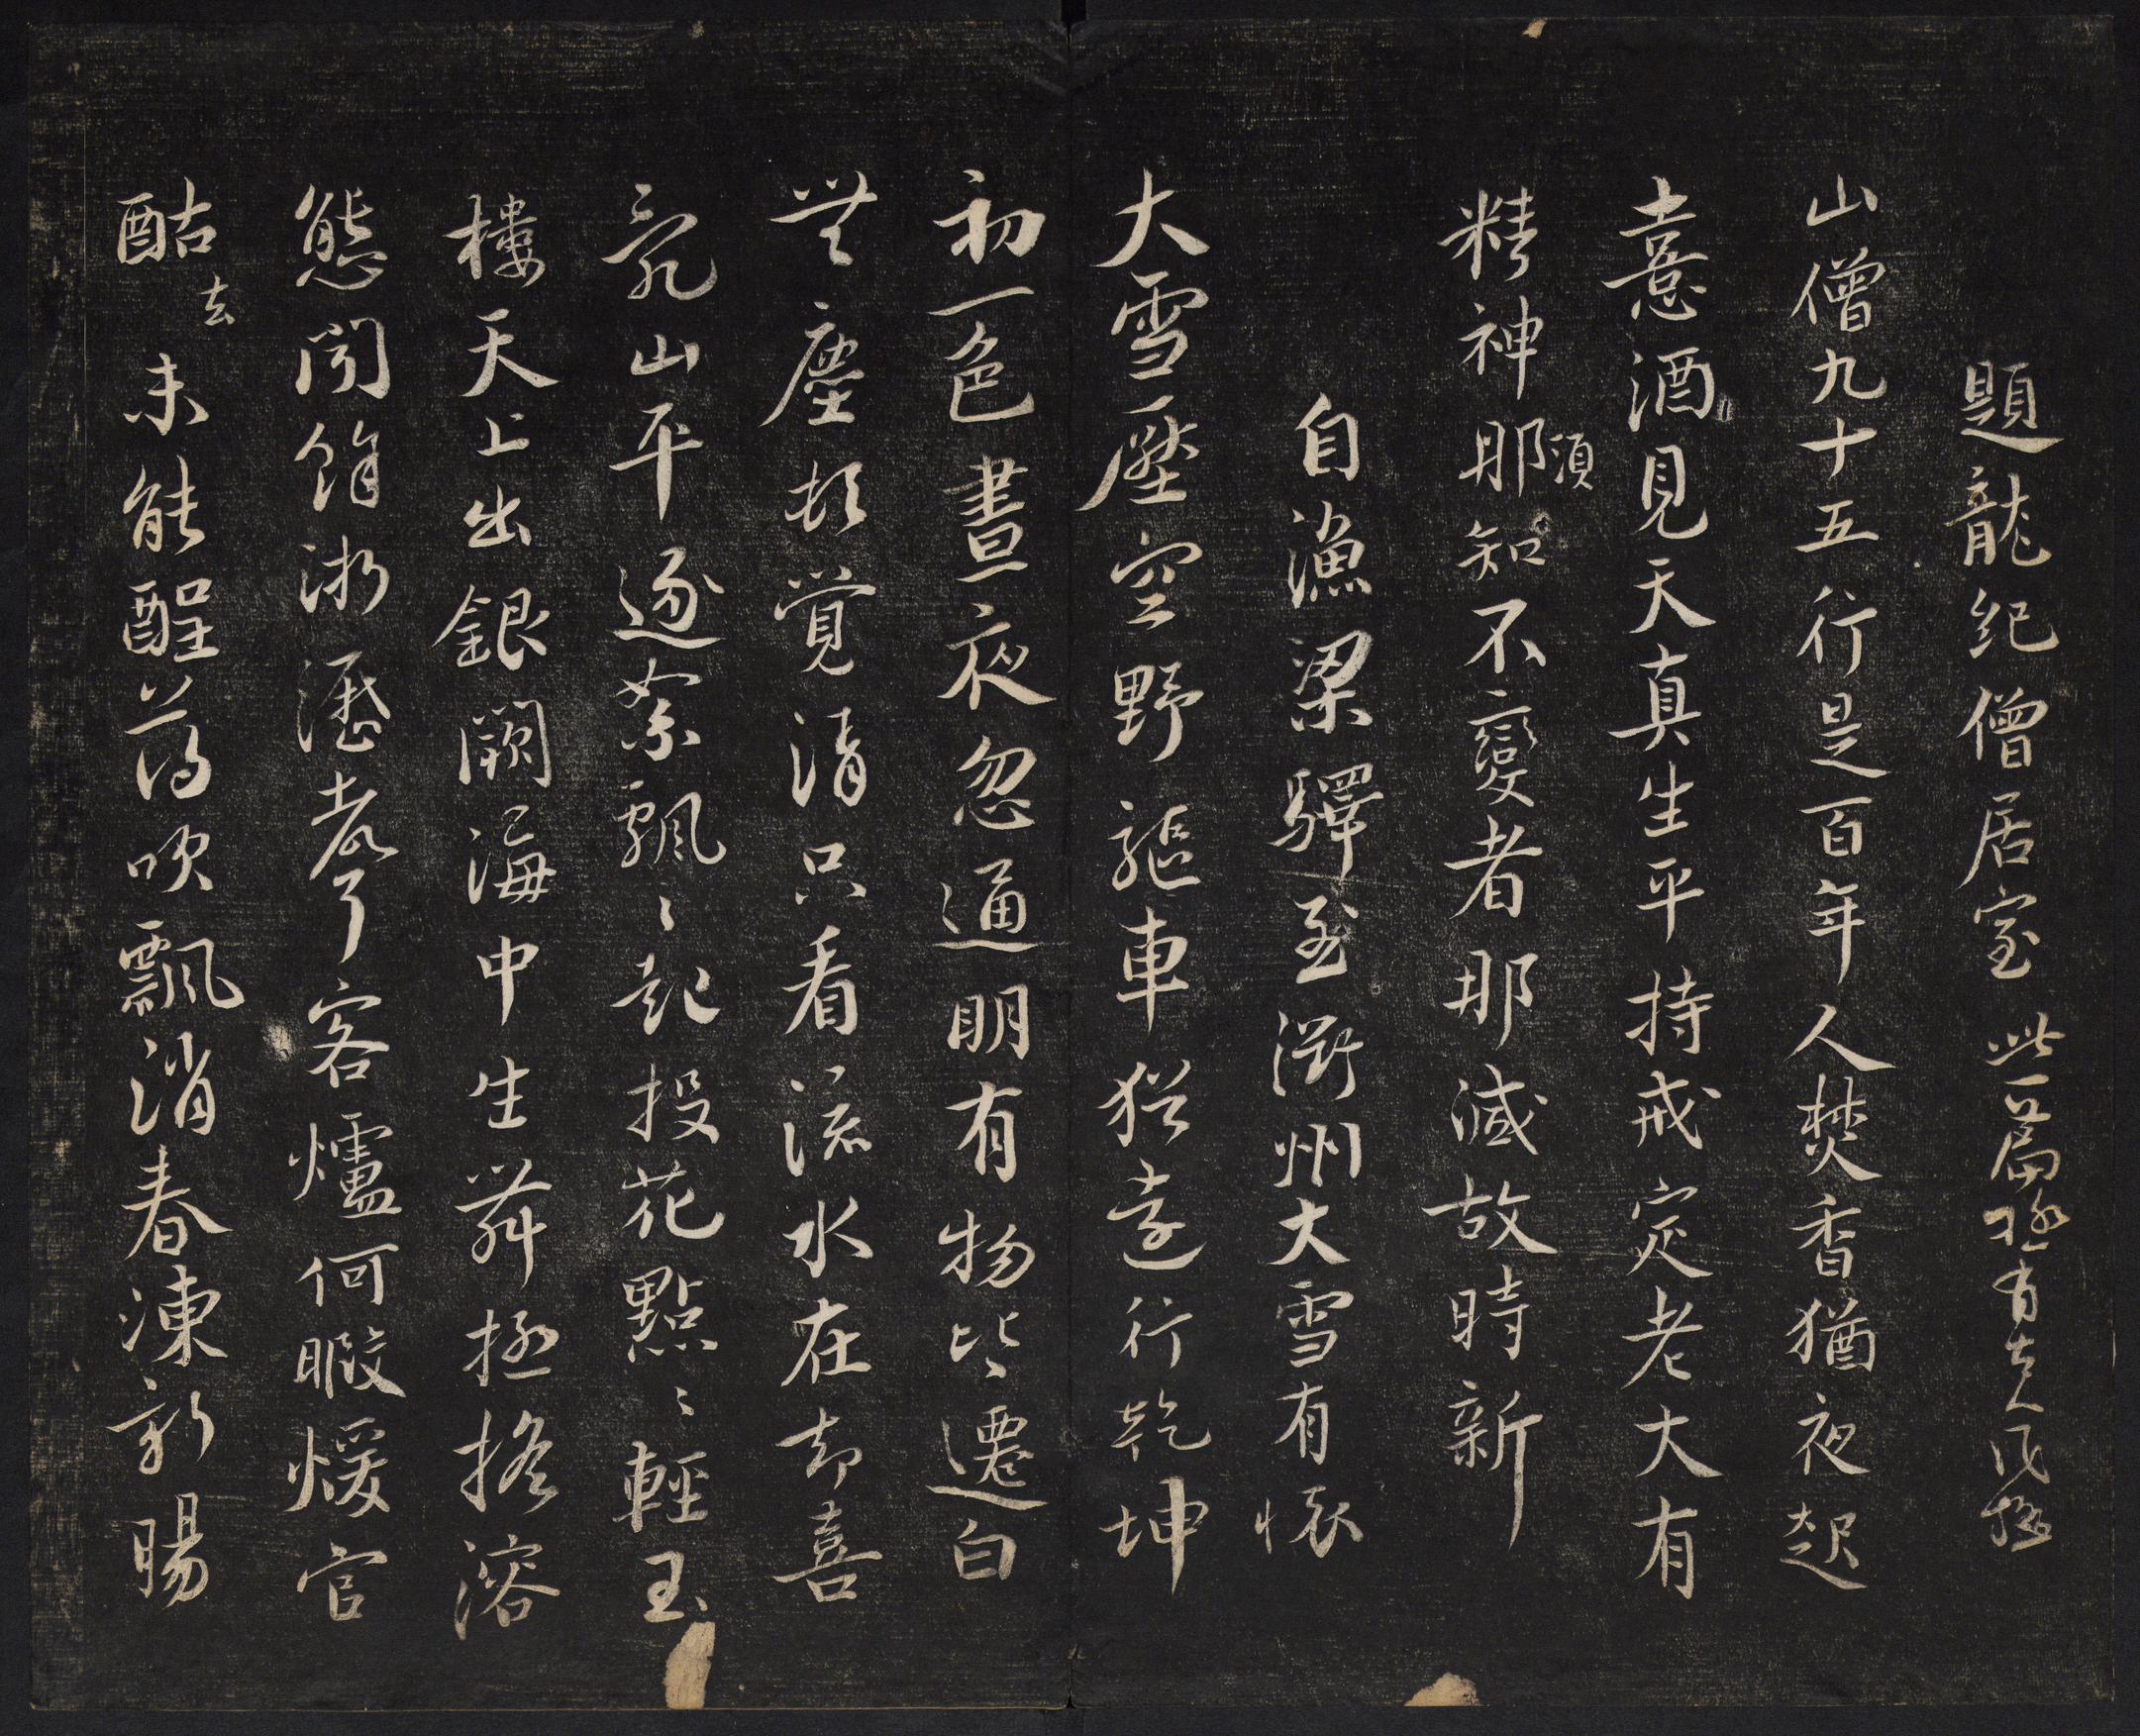 題龍紀僧居室 此篇極有老人風格
山僧九十五行是百年人焚香猶夜起
憙酒見天真生平持戒定老大有
精神那須知不變者那減故時新
自漁梁驛至衢州大雪有懷
大雪壓空野驅車猶遠行乾坤
初一色晝夜忽通明有物皆遷白
無塵頓覺清只看流水在却喜
亂山平逐絮飄飄起投花點點輕玉
樓天上出銀闕海中生舞極摧溶
態聞餘淅瀝聲客爐何暇煖官
酤去未能醒薄吹飄消春凍新暘